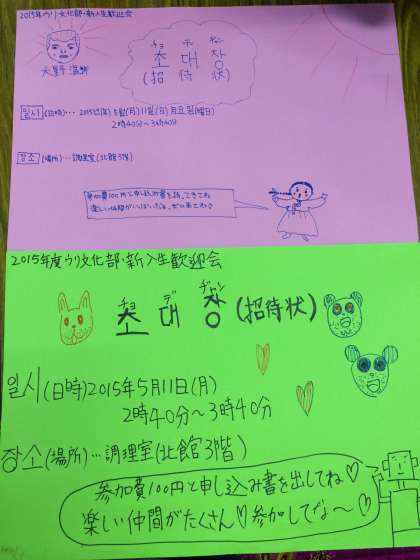 2015年ウリ文化部・新入生歓迎会
チョ デ チャン
초 대 장
(招 待 状)
일시(日時)…2015년(年)5월(月)11일(日)月요일(曜日)
2時40分〜3時40分
장소(場所)…調理室(北館3階)
参加費100円と申し込み書を持ってきてね
楽しい仲間がいっぱいだよ。ぜひ来てね♪
2015年度ウリ文化部・新入生歓迎会
チョ デ ヂャン
초 대 장(招待状)
일시(日時)2015年5月11日(月)
2時40分〜3時40分
장소(場所)…調理室(北館3階)
参加費100円と申し込み書を出してね♡
楽しい仲間がたくさん♡参加してな〜♡